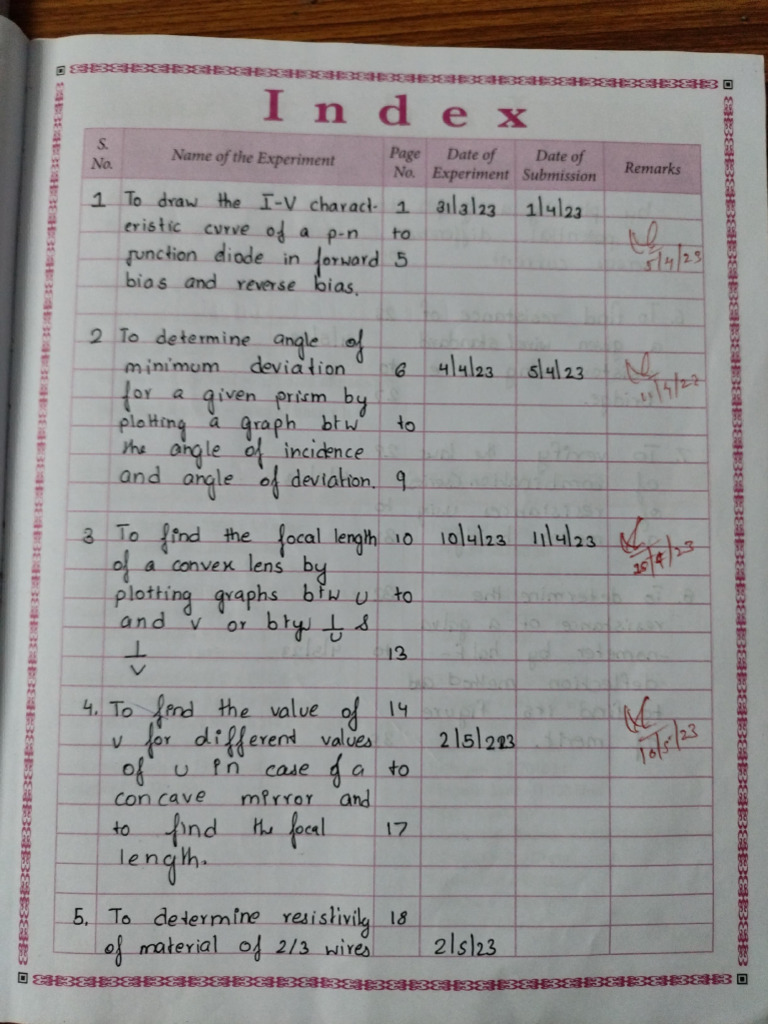 Index
S. No. Name of the Experiment Page No. Date of Experiment Date of Submission Remarks
1 To draw the I-V charact- 1 31/3/23 1/4/23
eristic curve of a p-n to
junction diode in forward 5 5/4/23
bias and reverse bias.
2 To determine angle of
minimum deviation 6 4/4/23 5/4/23
for a given prism by
plotting a graph btw to
the angle of incidence
and angle of deviation. 9
3 To find the focal length 10 10/4/23 11/4/23
of a convex lens by
plotting graphs btw u to
and v or btw 1/u &
1/v 13
4. To find the value of 14
v for different values 2/5/223 10/5/23
of u in case of a to
concave mirror and
to find the focal 17
length.
5. To determine resistivity 18
of material of 2/3 wires 2/5/23